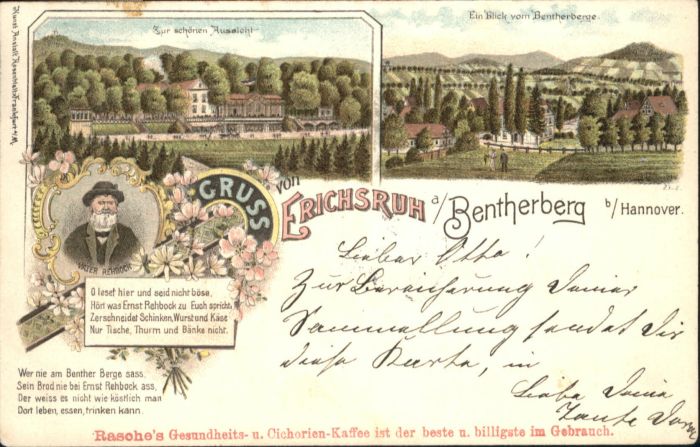 Zur schönen Aussicht
Ein Blick vom Bentherberge.
GRUSS
von
ERICHSRUH a/ Bentherberg b/ Hannover.
VATER REHBOCK
O leset hier und seid nicht böse,
Hört was Ernst Rehbock zu Euch spricht,
Zerschneidet Schinken, Wurst und Käse
Nur Tische, Thurm und Bänke nicht.
Wer nie am Benther Berge sass,
Sein Brod nie bei Ernst Rehbock ass,
Der weiss es nicht wie köstlich man
Dort leben, essen, trinken kann.
Lieber Otto!
Zur Bereicherung Deiner
Sammellung sendet Dir
diese Karte, in
Liebe Deine
Tante
Rasche's Gesundheits- u. Cichorien-Kaffee ist der beste u. billigste im Gebrauch.